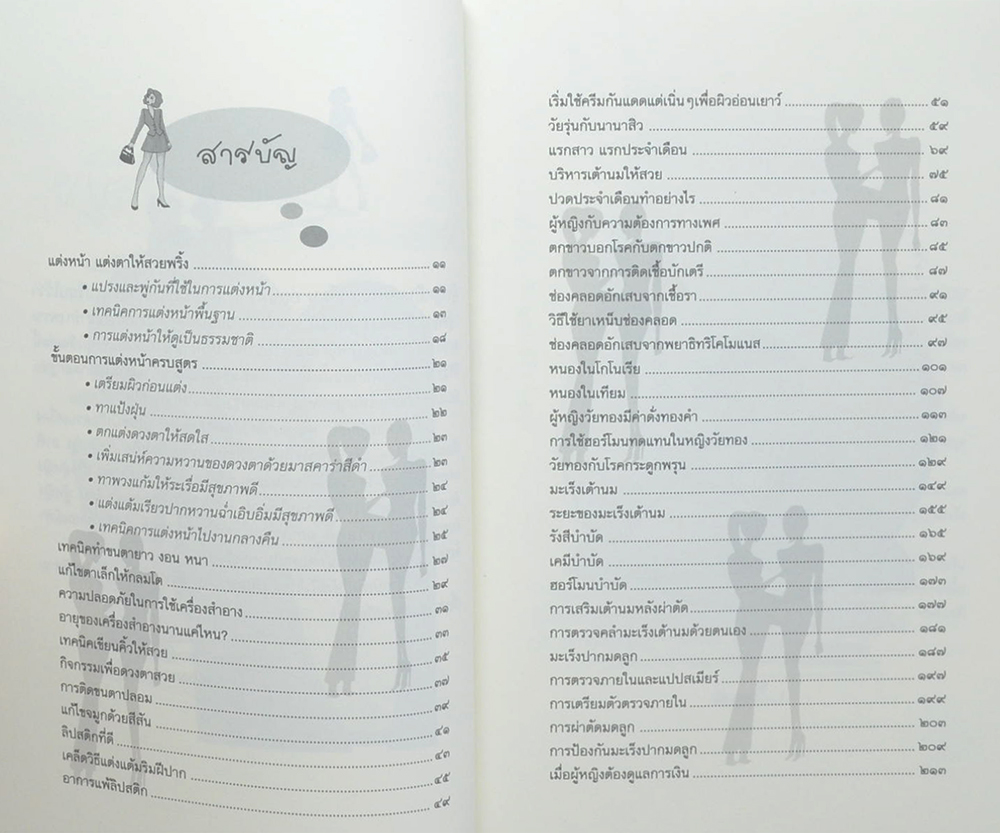 สารบัญ
แต่งหน้า แต่งตาให้สวยพริ้ง ๑๑
• แปรงและพู่กันที่ใช้ในการแต่งหน้า ๑๑
• เทคนิคการแต่งหน้าพื้นฐาน ๑๓
• การแต่งหน้าให้ดูเป็นธรรมชาติ ๑๘
ขั้นตอนการแต่งหน้าครบสูตร ๒๑
• เตรียมผิวก่อนแต่ง ๒๑
• ทาแป้งฝุ่น ๒๒
• ตกแต่งดวงตาให้สดใส ๒๓
• เพิ่มเสน่ห์ความหวานของดวงตาด้วยมาสคาร่าสีดำ ๒๓
• ทาพวงแก้มให้ระเรื่อมีสุขภาพดี ๒๔
• แต่งแต้มเรียวปากหวานฉ่ำเอิบอิ่มมีสุขภาพดี ๒๔
• เทคนิคการแต่งหน้าไปงานกลางคืน ๒๕
เทคนิคทำขนตายาว งอน หนา ๒๗
แก้ไขตาเล็กให้กลมโต ๒๙
ความปลอดภัยในการใช้เครื่องสำอาง ๓๑
อายุของเครื่องสำอางนานแค่ไหน? ๓๓
เทคนิคเขียนคิ้วให้สวย ๓๕
กิจกรรมเพื่อดวงตาสวย ๓๗
การติดขนตาปลอม ๓๙
แก้ไขจมูกด้วยสีสัน ๔๑
ลิปสติกที่ดี ๔๓
เคล็ดวิธีแต่งแต้มริมฝีปาก ๔๕
อาการแพ้ลิปสติก ๔๙
เริ่มใช้ครีมกันแดดแต่เนิ่นๆเพื่อผิวอ่อนเยาว์ ๕๑
วัยรุ่นกับนานาสิว ๕๙
แรกสาว แรกประจำเดือน ๖๙
บริหารเต้านมให้สวย ๗๕
ปวดประจำเดือนทำอย่างไร ๘๑
ผู้หญิงกับความต้องการทางเพศ ๘๓
ตกขาวบอกโรคกับตกขาวปกติ ๘๕
ตกขาวจากการติดเชื้อบักเตรี ๘๗
ช่องคลอดอักเสบจากเชื้อรา ๙๑
วิธีใช้ยาเหน็บช่องคลอด ๙๕
ช่องคลอดอักเสบจากพยาธิทริโคโมแนส ๙๗
หนองในโกโนเรีย ๑๐๑
หนองในเทียม ๑๐๗
ผู้หญิงวัยทองมีค่าดั่งทองคำ ๑๑๓
การใช้ฮอร์โมนทดแทนในหญิงวัยทอง ๑๒๑
วัยทองกับโรคกระดูกพรุน ๑๒๙
มะเร็งเต้านม ๑๔๙
ระยะของมะเร็งเต้านม ๑๕๕
รังสีบำบัด ๑๖๕
เคมีบำบัด ๑๖๙
ฮอร์โมนบำบัด ๑๗๓
การเสริมเต้านมหลังผ่าตัด ๑๗๗
การตรวจคลำมะเร็งเต้านมด้วยตนเอง ๑๘๑
มะเร็งปากมดลูก ๑๘๗
การตรวจภายในและแปปสเมียร์ ๑๙๗
การเตรียมตัวตรวจภายใน ๑๙๙
การผ่าตัดมดลูก ๒๐๓
การป้องกันมะเร็งปากมดลูก ๒๐๙
เมื่อผู้หญิงต้องดูแลการเงิน ๒๑๓